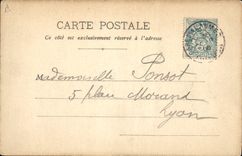 CARTE POSTALE
Ce côté est exclusivement réservé à l'adresse
Mademoiselle Ponsot
5 place Morand
Lyon